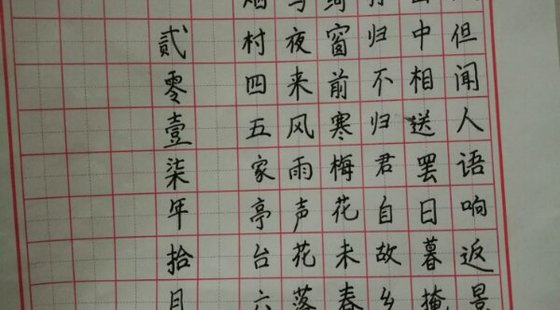 但闻人语响返景
山中相送罢日暮掩
孙归不归君自故乡
绮窗前寒梅花未春
鸟夜来风雨声花落
烟村四五家亭台六
贰零壹柒年拾月